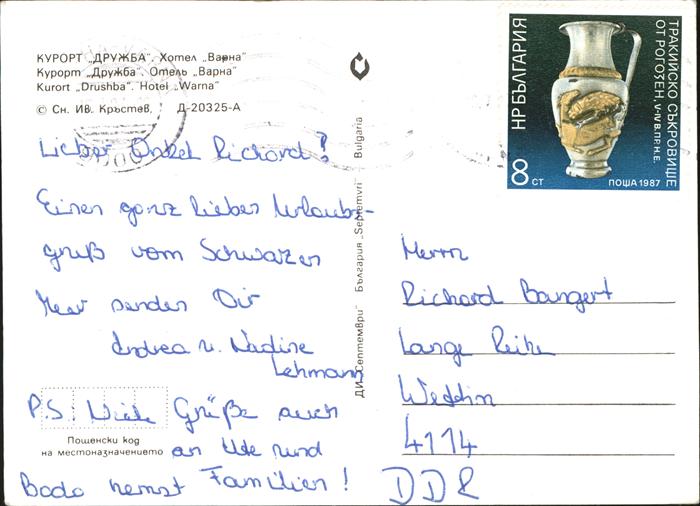 КУРОРТ „ДРУЖБА“. Хотел „Варна“
Курорт „Дружба“. Отель „Варна“
Kurort „Drushba“. Hotel „Warna“
© Сн. Ив. Кръстев, Д-20325-А
Lieber Onkel Richard!
Einen ganz lieben Urlaubs-
gruß vom Schwarzen
Meer senden Dir
Andrea u. Nadine
Lehmann
P.S. Viele Grüße auch
an Ute und
Bodo nebst Familien!
Пощенски код
на местоназначението
ДИ „Септември“ България „Septemvri“ Bulgaria
НР БЪЛГАРИЯ
8 СТ
ПОЩА 1987
ТРАКИЙСКО СЪКРОВИЩЕ
ОТ РОГОЗЕН, V-IV В. ПР. Н. Е.
Herrn
Richard Bangert
Lange Reihe
Weddin
4114
DDR